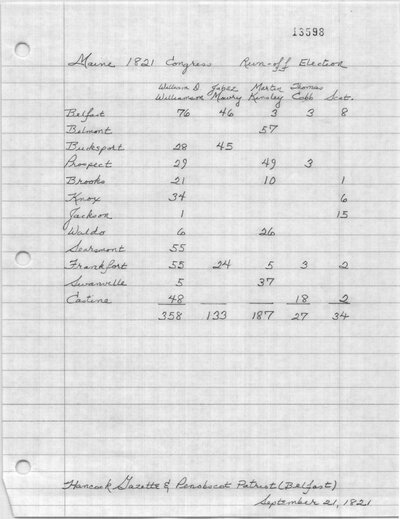 13598
Maine 1821 Congress Run-off Election
William D Jabez Martin Thomas
Williamson Mowry Kinsley Cobb Scat.
Belfast 76 46 3 3 8
Belmont 57
Bucksport 28 45
Prospect 29 49 3
Brooks 21 10 1
Knox 34 6
Jackson 1 15
Waldo 6 26
Searsmont 55
Frankfort 55 24 5 3 2
Swanville 5 37
Castine 48 18 2
358 133 187 27 34
Hancock Gazette & Penobscot Patriot (Belfast)
September 21, 1821